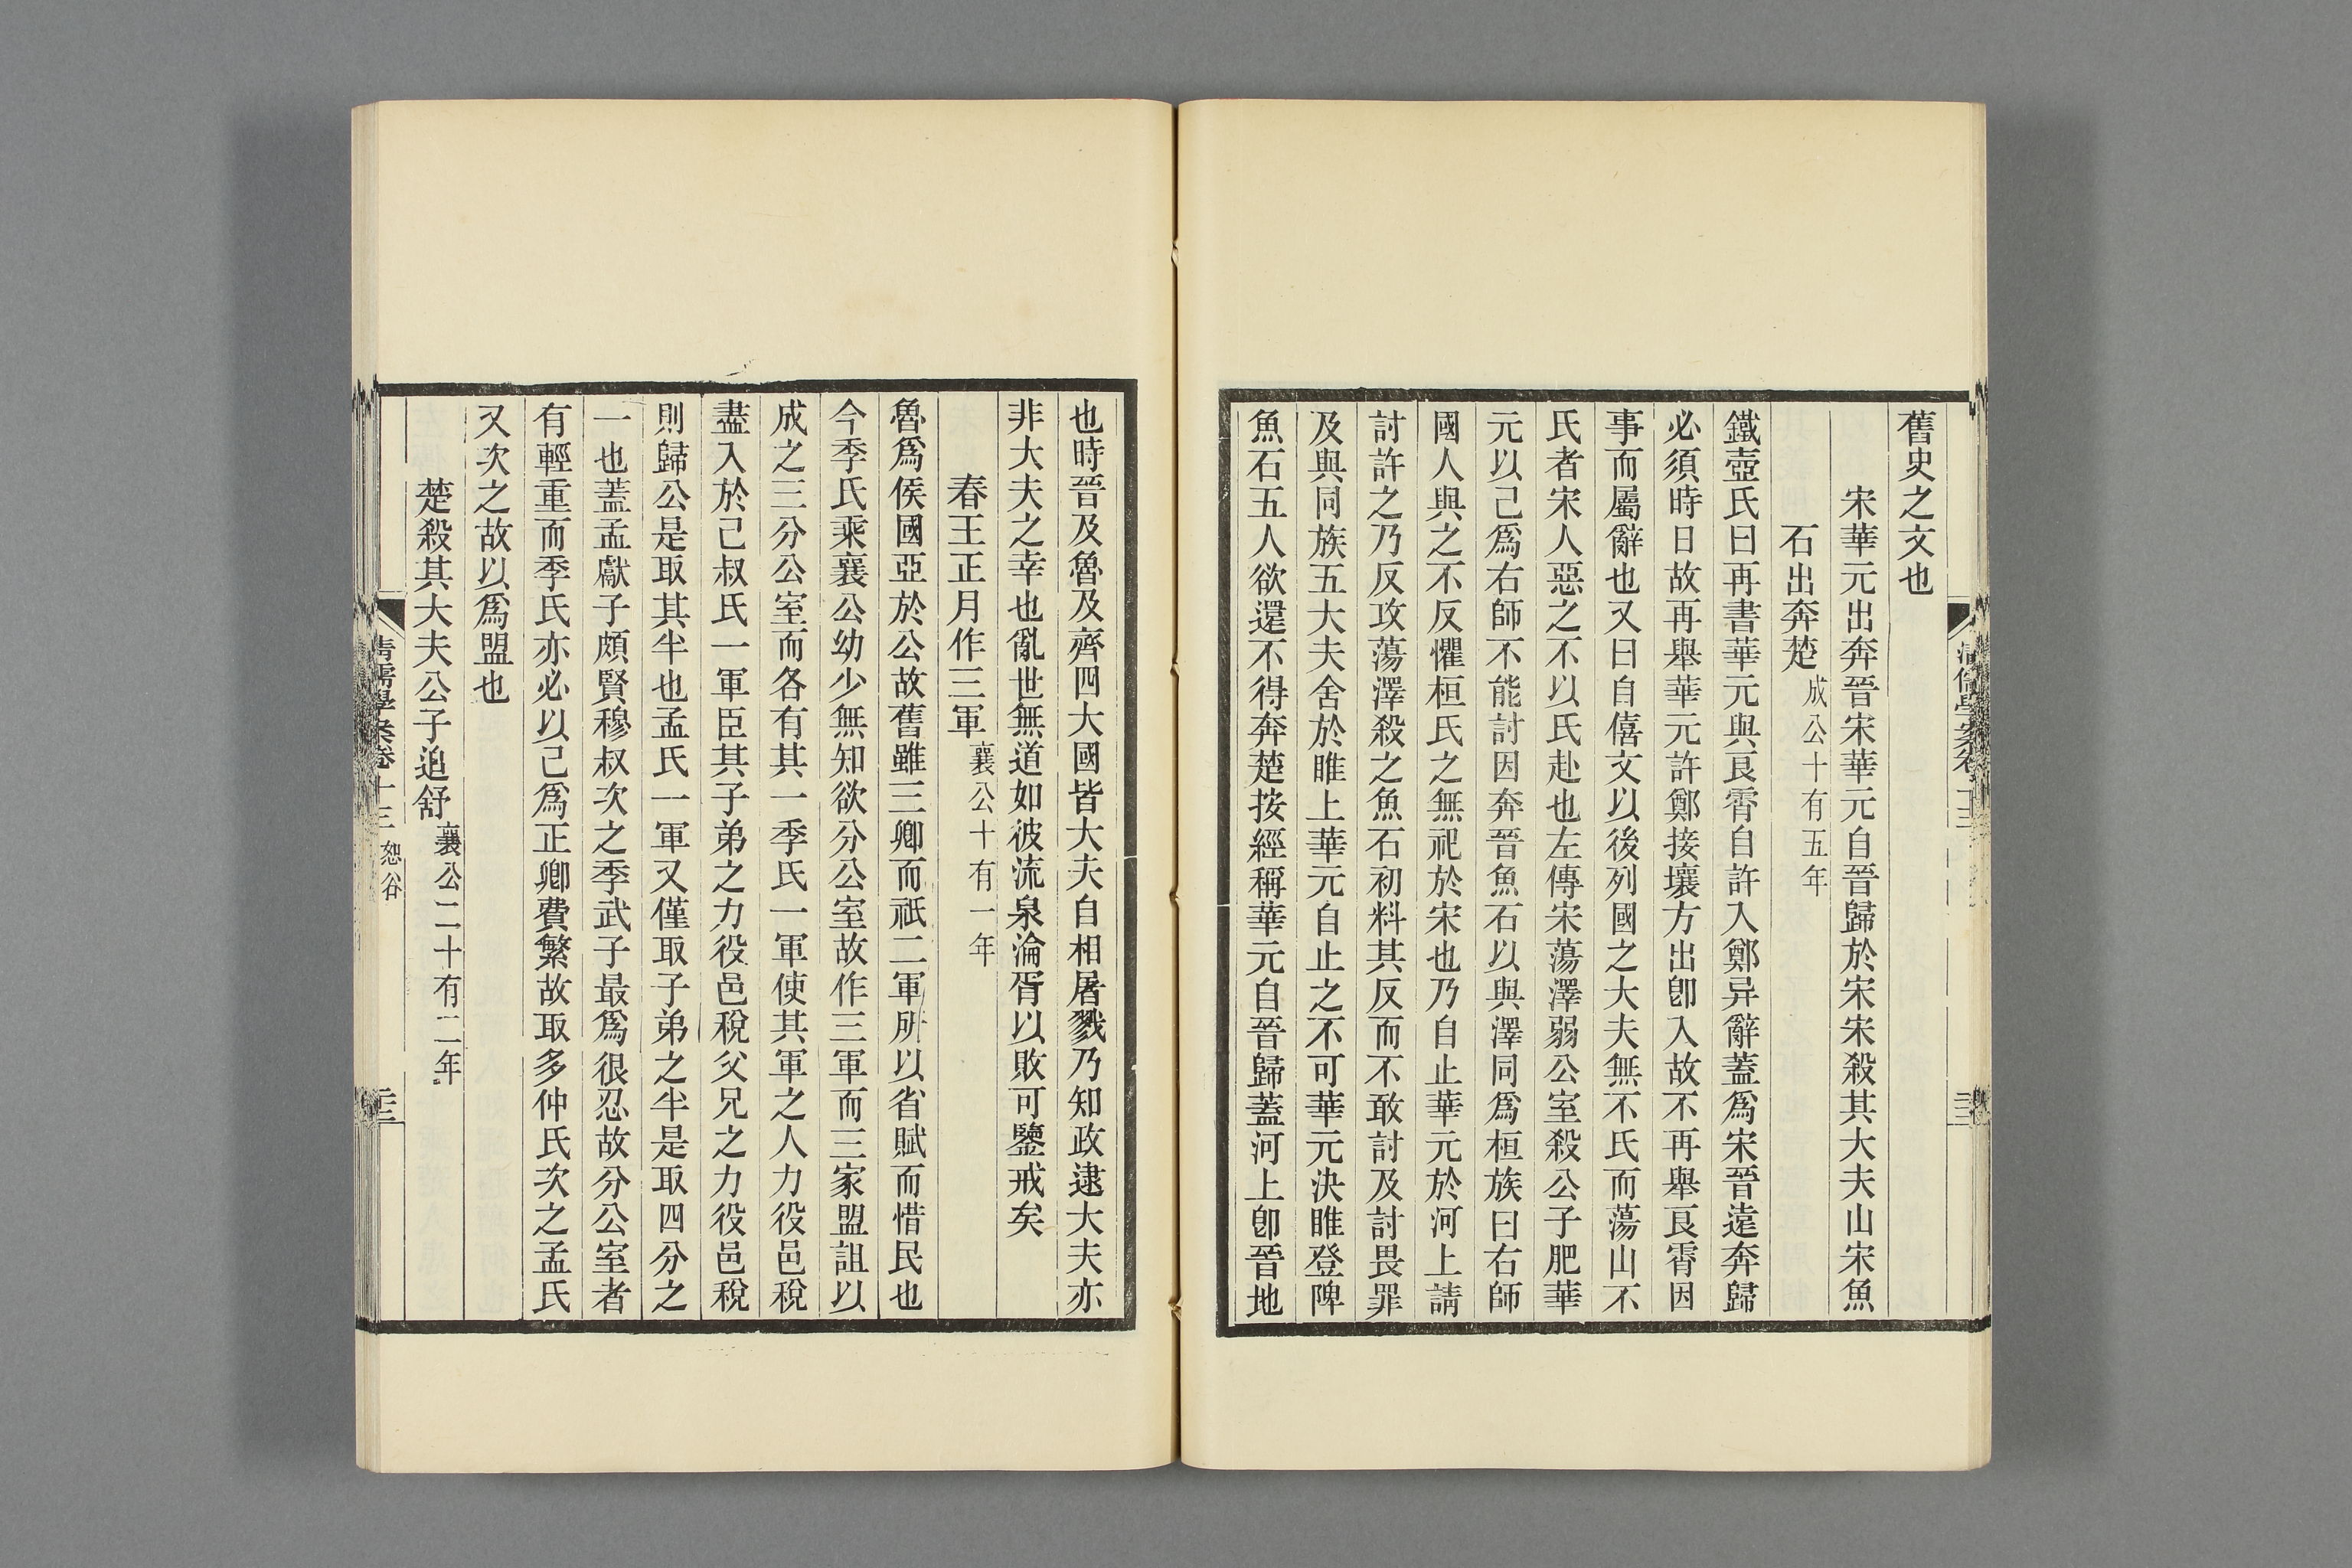 舊史之文也
宋華元出奔晉宋華元自晉歸於宋宋殺其大夫山宋魚
石出奔楚成公十有五年
鐵壺氏曰再書華元與良霄自許入鄭异辭蓋爲宋晉遠奔歸
必須時日故再舉華元許鄭接壤方出卽入故不再舉良霄因
事而屬辭也又曰自僖文以後列國之大夫無不氏而蕩山不
氏者宋人惡之不以氏赴也左傳宋蕩澤弱公室殺公子肥華
元以己爲右師不能討因奔晉魚石以與澤同爲桓族曰右師
國人與之不反懼桓氏之無祀於宋也乃自止華元於河上請
討許之乃反攻蕩澤殺之魚石初料其反而不敢討及討畏罪
及與同族五大夫舍於睢上華元自止之不可華元決睢登陴
魚石五人欲還不得奔楚按經稱華元自晉歸蓋河上卽晉地
也時晉及魯及齊四大國皆大夫自相屠戮乃知政逮大夫亦
非大夫之幸也亂世無道如彼流泉淪胥以敗可鑒戒矣
春王正月作三軍襄公十有一年
魯爲侯國亞於公故舊雖三卿而祇二軍所以省賦而惜民也
今季氏乘襄公幼少無知欲分公室故作三軍而三家盟詛以
成之三分公室而各有其一季氏一軍使其軍之人力役邑稅
盡入於己叔氏一軍臣其子弟之力役邑稅父兄之力役邑稅
則歸公是取其半也孟氏一軍又僅取子弟之半是取四分之
一也蓋孟獻子頗賢穆叔次之季武子最爲很忍故分公室者
有輕重而季氏亦必以己爲正卿費繁故取多仲氏次之孟氏
又次之故以爲盟也
楚殺其大夫公子追舒襄公二十有二年
清儒學案卷十三 恕谷